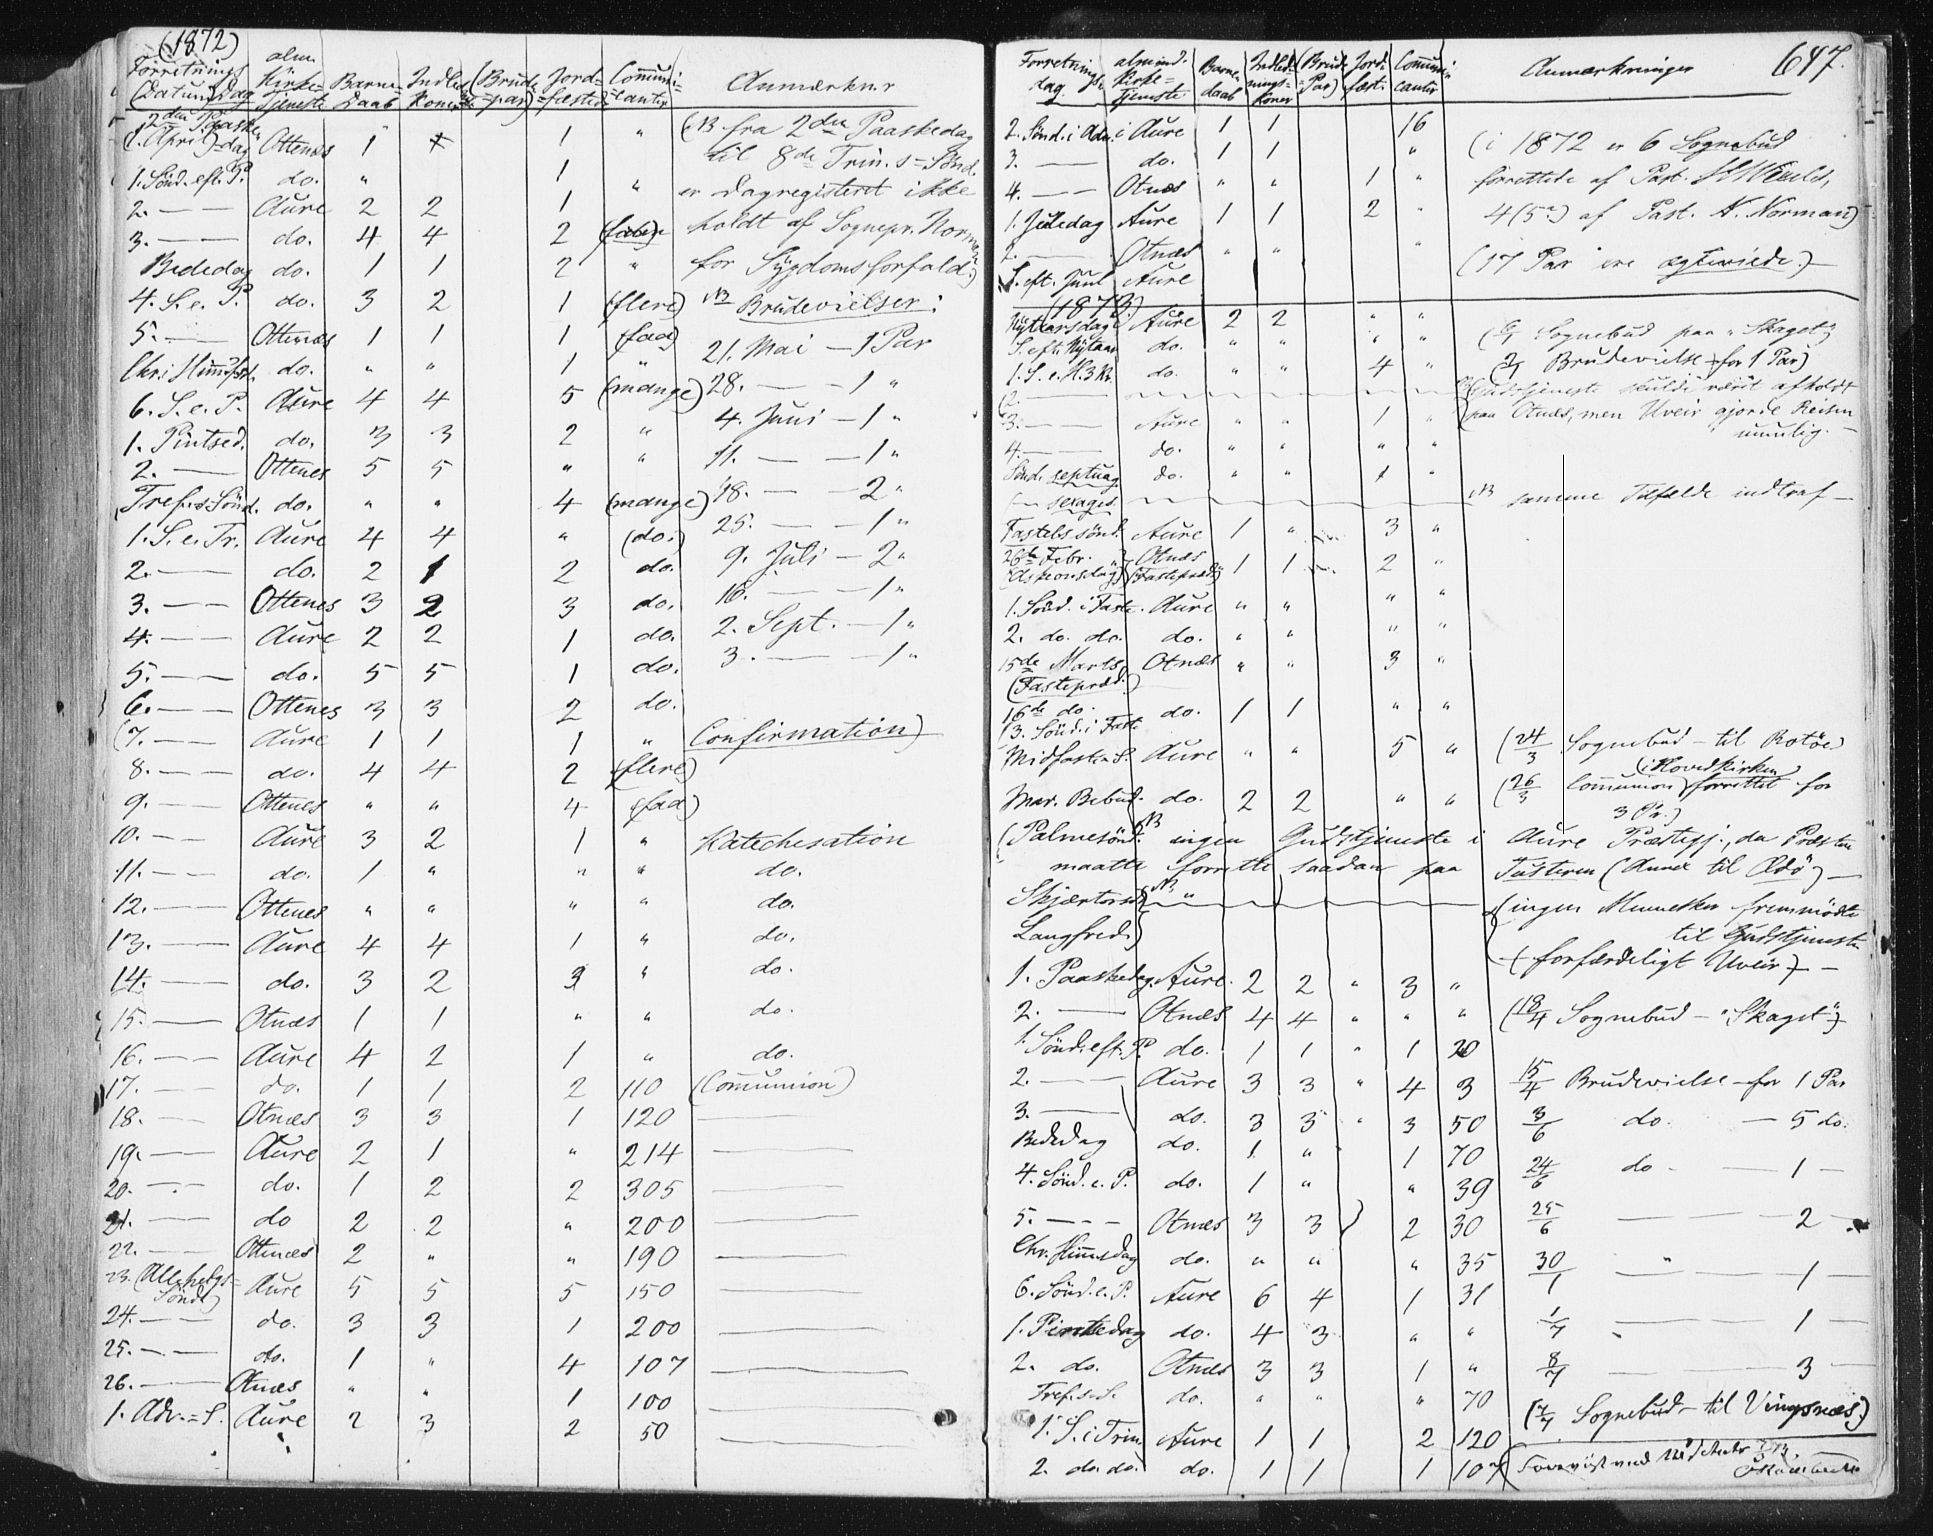 (1872)
Forretnings (Datum) Dag | alm. Kirke-Tjeneste | Barne-Daab | Indled. Koner | (Brude-par) | Jord-fæstet | Communi-canter | Anmærkn.r
2den Paaske (1. April)-dag Ottenæs 1 1 " (NB fra 2den Paaskedag
1. Sönd. eft. P. do. " 1 " til 8de Trin.s=Sönd.
2. — — Aure 2 2 1 er Dagregisteret ikke
3. — — do. 4 4 2 holdt af Sognepr. Norman
Bededag do. 1 1 2 " for Sÿgdomsforfald.)
4. S. e. P. do. 3 2 1 (flere) NB Brudevielser:
5. — Ottenæs 1 1 1 (faa)
Chri Himmelf. do. " " 1 " 21. Mai — 1 Par
6. S. e. P. Aure 4 4 5 (mange) 28. — — 1 "
1. Pintsed. do. 3 3 2 " 4. Juni — 1 "
2. — Ottenes 5 5 " " 11. — — 1 "
Tref.s Sönd. do. " " 4 (mange) 18. — — 2 "
1. S. e. Tr. Aure 4 4 " (do.) 25. — — 1 "
2. — — do. 2 1 2 do. 9. Juli — 2 "
3. — — Ottenes 3 2 3 do. 16. — — 1 "
4. — — Aure 2 2 1 do. 2. Sept. — 1 "
5. — — do. 5 5 1 do. 3. — — 1 "
6. — — Ottenes 3 3 2 do.
(7. — — Aure 1 1 1 " Confirmation)
8. — — do. 4 4 2 (flere)
9. — — Ottenes " " 4 (faa)
10. — — Aure 3 2 1 " Katechesation
11. — — do. 1 " " " do.
12. — — Ottenes " " " " do.
13. — — Aure 4 4 1 " do.
14. — — do. 3 2 3 " do.
15. — — Otnæs 1 1 " " do.
16. — — Aure 4 2 1 " do.
17. — — do. 1 1 2 110 (Communion)
18. — — Otnæs 3 3 1 120 —
19. — — Aure 2 1 " 214 —
20. — — do. 1 2 2 305 —
21. — — do 2 2 " 200 —
22. — — Ottenæs 2 " " 190 —
23. (Allehelgs-Sönd.) Aure 5 5 5 150 —
24. — — do. 3 3 1 200 —
25. — — do. 1 " 4 107 —
26. — — Otnæs " " 1 100 —
1. Adv.=S. Aure 2 3 2 50 —
647.
Forretnings dag | almind. Kirke-Tjeneste | Barne daab | Indled-nings-koner | (Brude-Par) | Jord-fæst. | Communi canter | Anmærkninger
2. Sönd. i Adv. i Aure 1 1 16
3. — do. 1 1 " (i 1872 er 6 Sognebud
4. — — Otnæs " " 1 " forrettede af Past.
1. Juledag Aure 1 1 2 " 4 (5) af Past. N. Norman)
2. — Otnæs " " "
S. eft. Juul Aure (17 Par ere ægteviede.)
(1873.)
Nytaarsdag i Aure 2 2 " " Sognebud paa "Skaget"
S. eft. Nytaar do. " " " " Brudevielse for 1 Par)
1. S. e. H.3 K. do. " " 4 "
(2. — Gudstjeneste skulde været afholdt
3. — Aure " " 1 " paa Otnæs, men Uveir gjorde Reisen umulig.
4. — do. " " " "
Sönd. septuag. do. " " 1 "
— sexages. NB samme Tilfælde indtraf —
Fastels sönd. Aure 1 " 3 "
26de Febr. (Askeonsdag) Otnæs (Fastepræd.) 1 1 2 "
1. Sönd. i Faste. Aure " " " "
2. do. do. do. " " " "
15de Marts (Fastepræd.) Otnæs " " 3 "
16de do. 3. Sönd. i Faste do. 1 1 " "
Midfaste S. Aure " " 5 " (24/3 Sognebud — til Rotöe)
Mar. Bebud. do. 2 2 " " (26/3 Communion (i Hovedkirken) forrettet for 3 Pr.)
(Palmesönd. NB ingen Gudstjeneste i Aure Præstegj., da Præsten
maatte forrette saadan paa Tusteren (Annex til Ædö) —
Skjærtorsd. NB " ingen Mennesker fremmödte
Langfred.) til Gudstjeneste
(forfærdeligt Uveir) —
1. Paaskedag Aure. 2 2 " 3 "
2. — Otnæs 4 4 " " " (18/4 Sognebud — "Skaget")
1. Sönd. eft. P. do. 1 1 " 1 20
2. — — Aure 3 3 " 4 3 15/4 Brudevielse — for 1 Par
3. — — do. 3 3 " 3 50 3/6 do. — 5 do.
Bededag do. 1 " 1 70 24/6 do — 1 —
4. Sönd. e. P. do. 1 " " 39
5. — — Otnæs 3 3 2 30 25/6 — — 2 —
Chr. Himmelsdag do. " " " 35 30/1 — " — 1 —
6. Sönd. e. P. Aure 6 4 1 31
1. Pintsedag do. 4 3 " " 1/7 — — 1 —
2. do. Otnæs 3 3 1 " 8/7 — — 3 —
Tref.s. S. do. " " " 70 (7/7 Sognebud — til Vingsnæs)
1. S. i Trin. Aure 1 1 2 120
2. do. do. do. 1 1 1 107